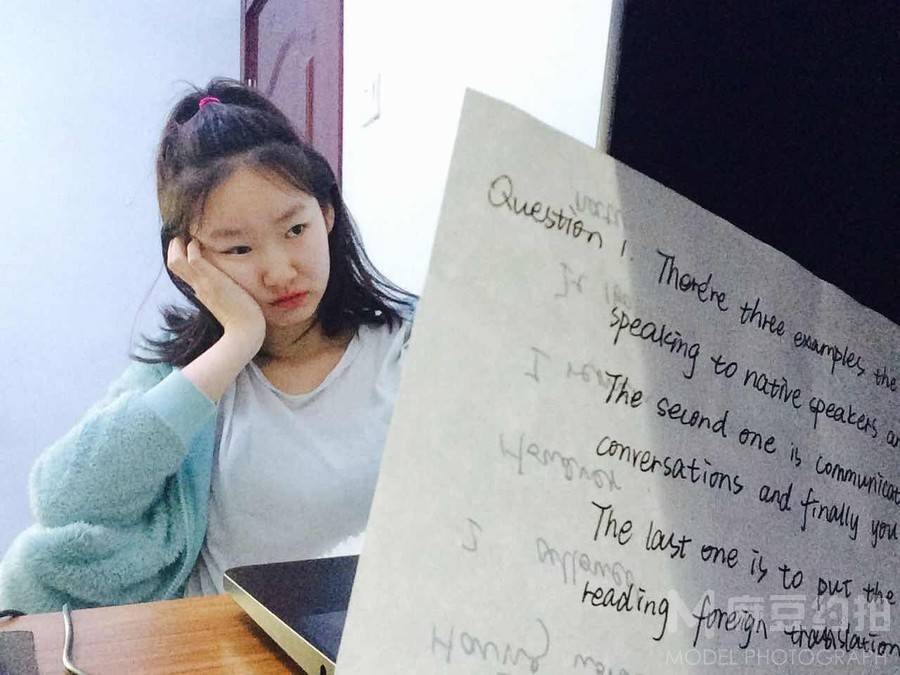 Question 1. There're three examples the
speaking to native speakers
The second one is
conversations and finally you
The last one is to put the
reading foreign translation
麻豆约拍
MODEL PHOTOGRAPH